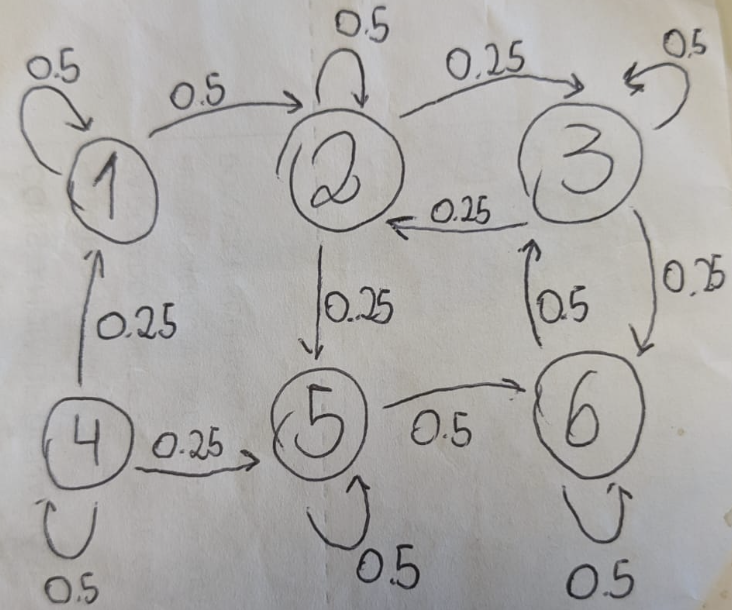 0.5
0.5 0.5 0.25 0.5
1 2 3
0.25
0.25 0.25 0.5 0.25
4 0.25 5 0.5 6
0.5 0.5 0.5